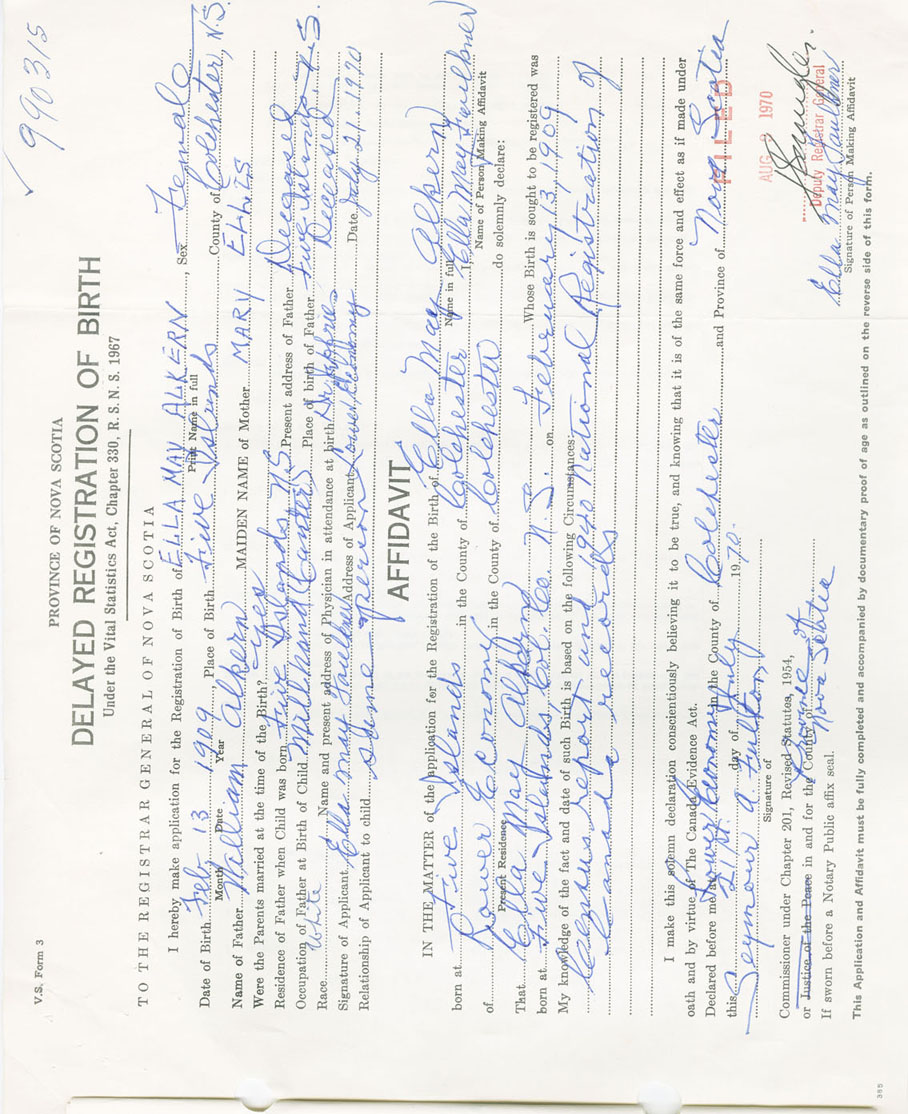 990315
V.S. Form 3
PROVINCE OF NOVA SCOTIA
DELAYED REGISTRATION OF BIRTH
Under the Vital Statistics Act, Chapter 330, R. S. N. S. 1967
TO THE REGISTRAR GENERAL OF NOVA SCOTIA
I hereby make application for the Registration of Birth of ELLA MAY ALKERN, Sex Female
Print Name in full
Date of Birth Feb. 13 1909, Place of Birth Five Islands County of Colchester, N.S.
Month Date Year
Name of Father William Alkern MAIDEN NAME of Mother MARY ELLIS
Were the Parents married at the time of the Birth? Yes Present address of Father Deceased
Residence of Father when Child was born Five Islands N.S. Place of birth of Father Five Islands N.S.
Occupation of Father at Birth of Child Millhand Deceased
Race White Name and present address of Physician in attendance at birth Dr.
Signature of Applicant Ella May Faulkner Address of Applicant Lower Economy Date July 21 1970
Relationship of Applicant to child same person
AFFIDAVIT
IN THE MATTER of the application for the Registration of the Birth of Ella May Alkern
Name in full
born at Five Islands in the County of Colchester I Ella May Faulkner
Name of Person Making Affidavit
of Lower Economy in the County of Colchester do solemnly declare:
Present Residence
That Ella May Alkern Whose Birth is sought to be registered was
born at Five Islands, Col. Co. N.S. on February 13, 1909
My knowledge of the fact and date of such Birth is based on the following Circumstances:
Census report and 1940 National Registration of
Canada records
I make this solemn declaration conscientiously believing it to be true, and knowing that it is of the same force and effect as if made under
oath and by virtue of The Canada Evidence Act.
Declared before me at Lower Economy in the County of Colchester and Province of Nova Scotia
this 21st. day of July 1970.
FILED
AUG 1970
Seymour A. Fulton
Signature of
Deputy Registrar General
Commissioner under Chapter 201, Revised Statutes, 1954,
Ella May Faulkner
Signature of Person Making Affidavit
or Justice of the Peace in and for the County of Province of Nova Scotia
If sworn before a Notary Public affix seal.
This Application and Affidavit must be fully completed and accompanied by documentary proof of age as outlined on the reverse side of this form.
385